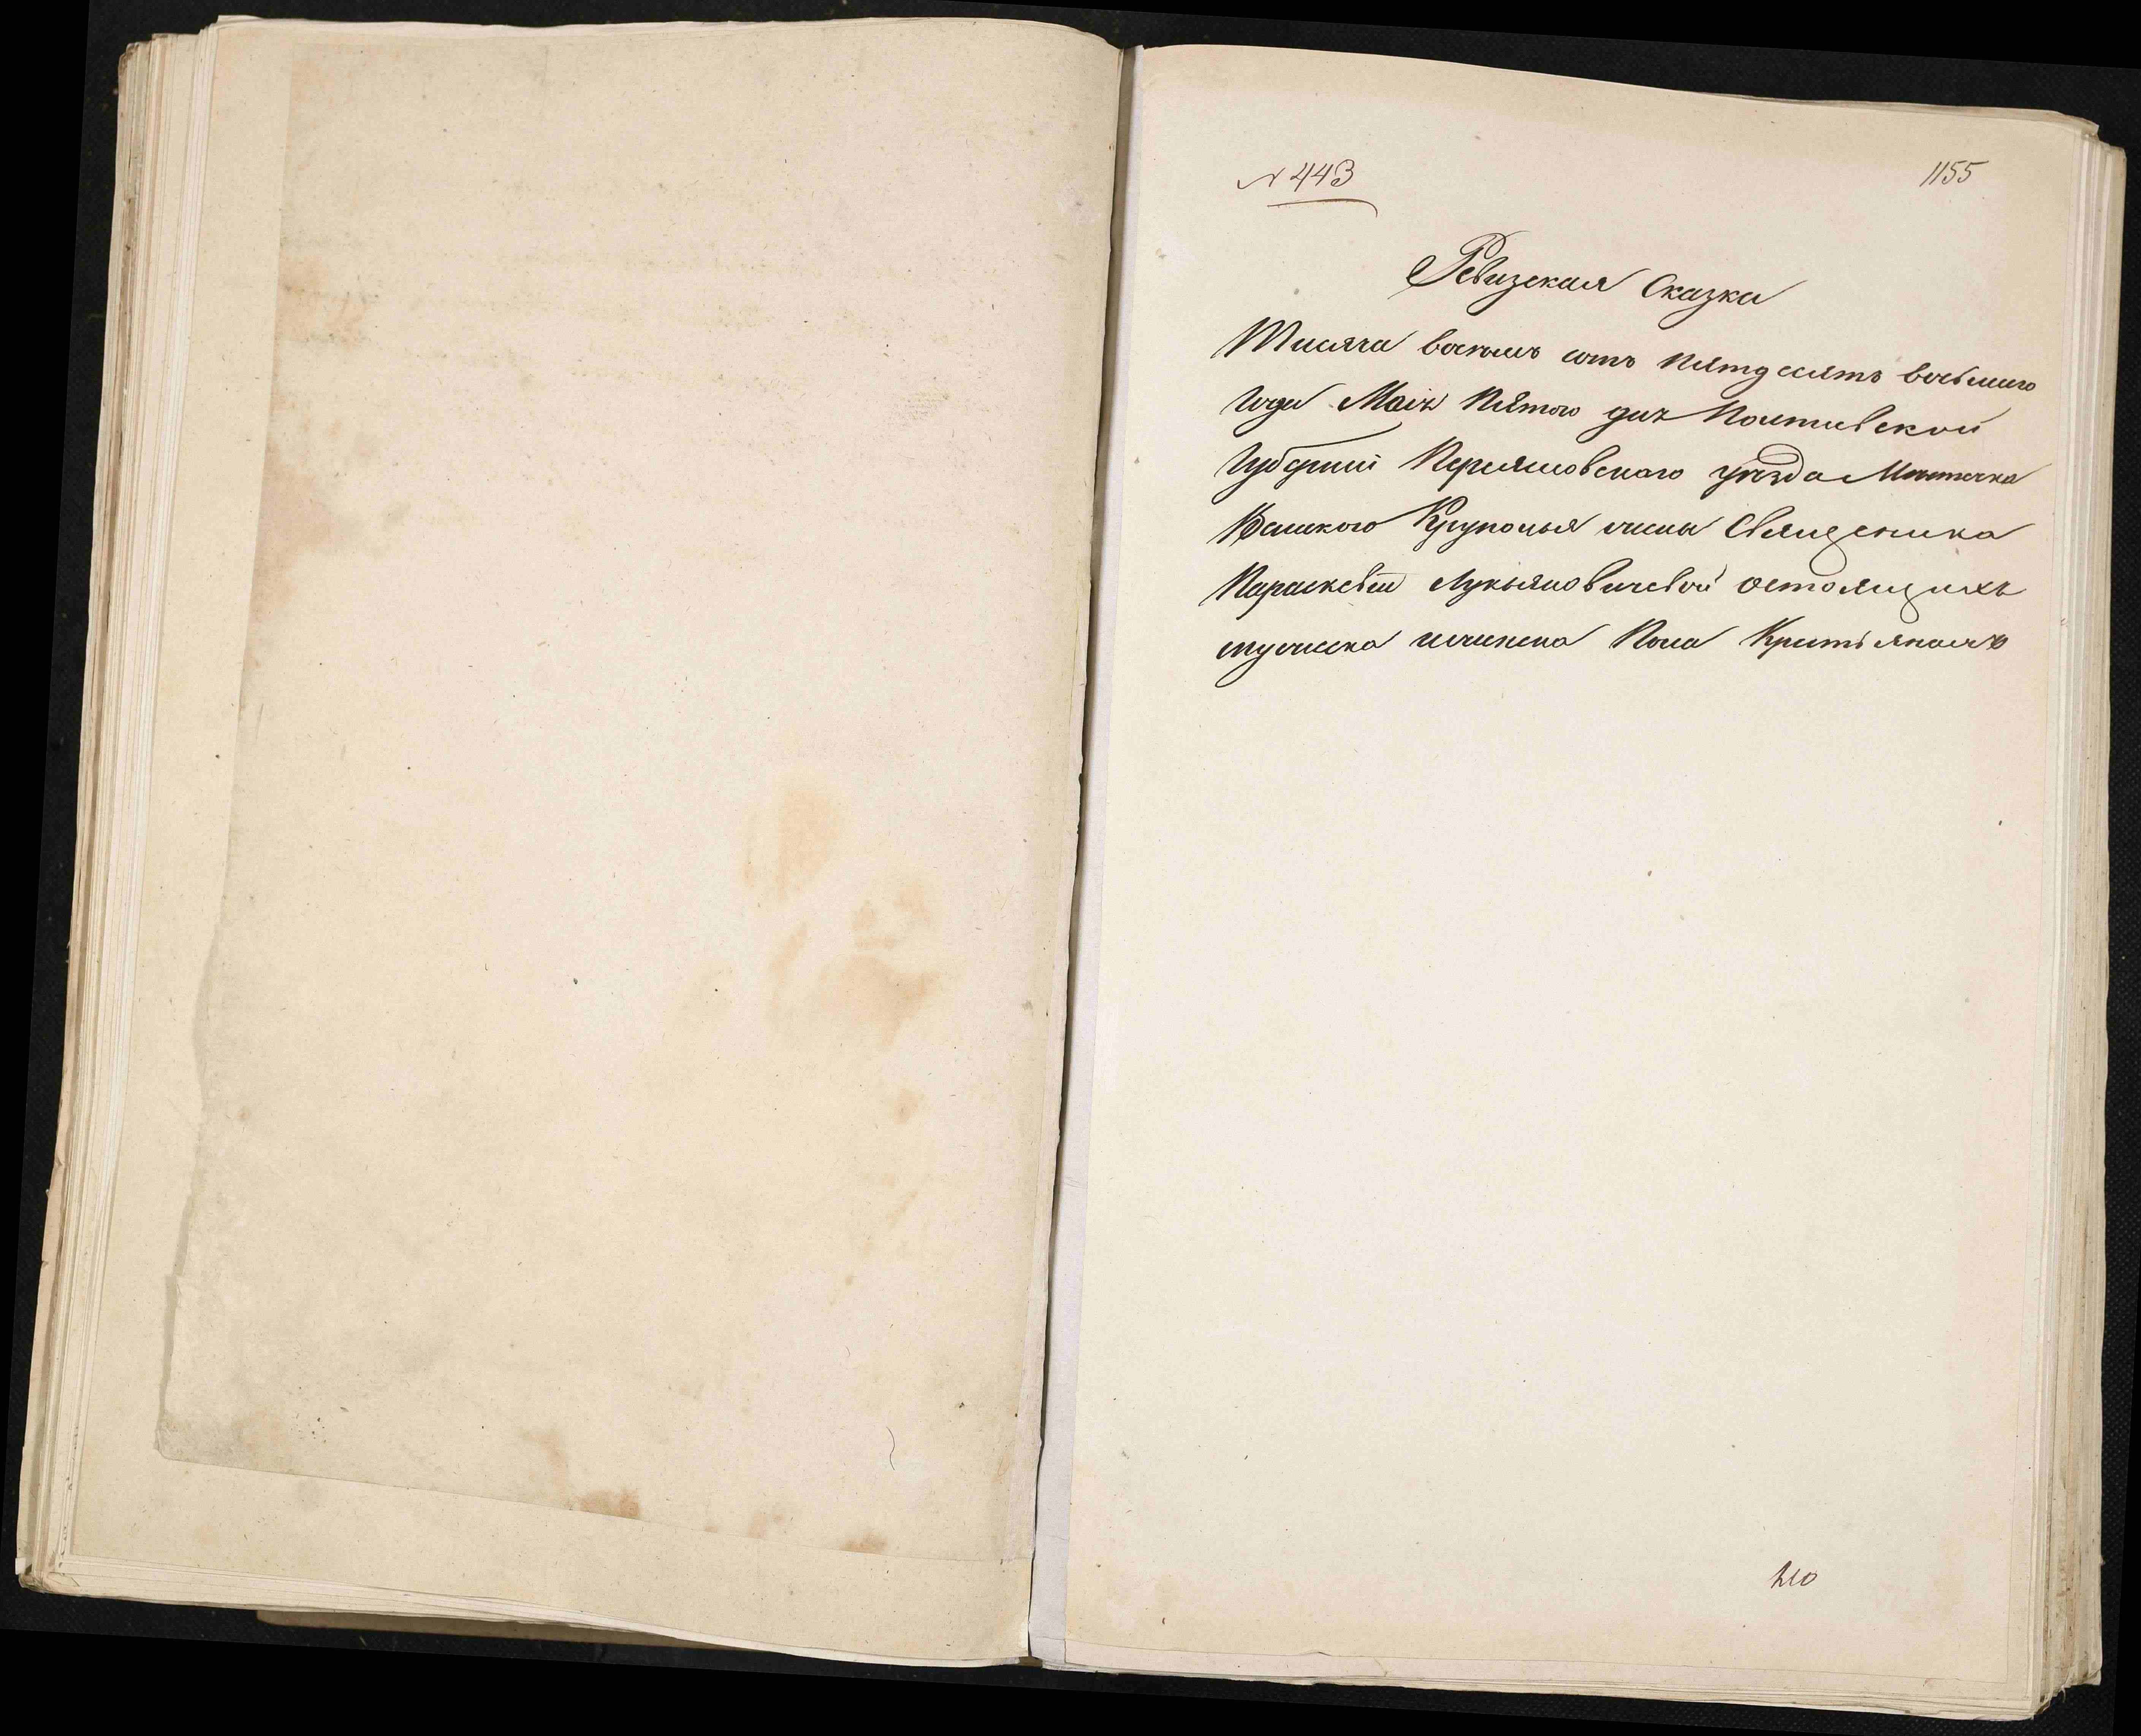 N 443
1155
Ревизская Сказка
Тисяча восемь сотъ пятдесятъ восьмого
года Маія Пятого дня Полтавской
Губерніи Переясловского уезда Местечка
Великого Круполья жены Священика
Параскевіи Лукьяновичевой остоящихъ
мужеска женска Пола Крестьянахъ